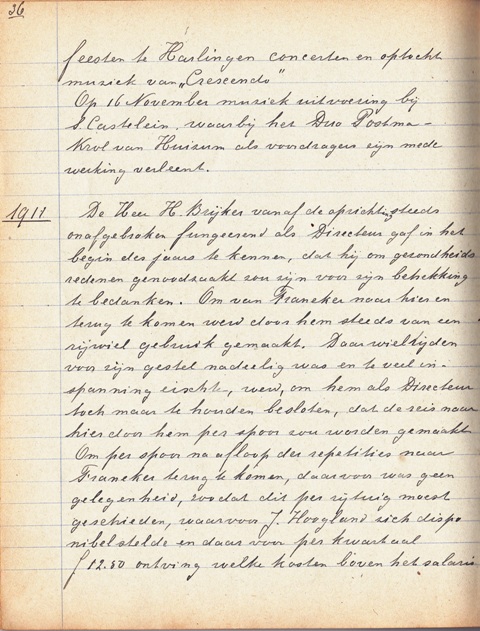 36
feesten te Harlingen concerten en optocht
muziek van „Crescendo"
Op 16 November muziek uitvoering bij
S. Castelein, waarbij het Duo Postma-
Krol van Huizum als voordragers zijn mede
werking verleent.
1911 De Heer H. Brijker vanaf de oprichting steeds
onafgebroken fungeerend als Directeur gaf in het
begin des jaars te kennen, dat hij om gezondheids
redenen genoodzaakt zou zijn voor zijn betrekking
te bedanken. Om van Franeker naar hier en
terug te komen werd door hem steeds van een
rijwiel gebruik gemaakt. Daar wielrijden
voor zijn gestel nadeelig was en te veel in-
spanning eischte, werd, om hem als Directeur
toch maar te houden besloten, dat de reis naar
hier door hem per spoor zou worden gemaakt.
Om per spoor na afloop der repetities naar
Franeker terug te komen, daarvoor was geen
gelegenheid, zoodat dit per rijtuig moest
geschieden, waarvoor J. Hoogland zich dispo
nibel stelde en daar voor per kwartaal
f 12.50 ontving welke kosten boven het salaris